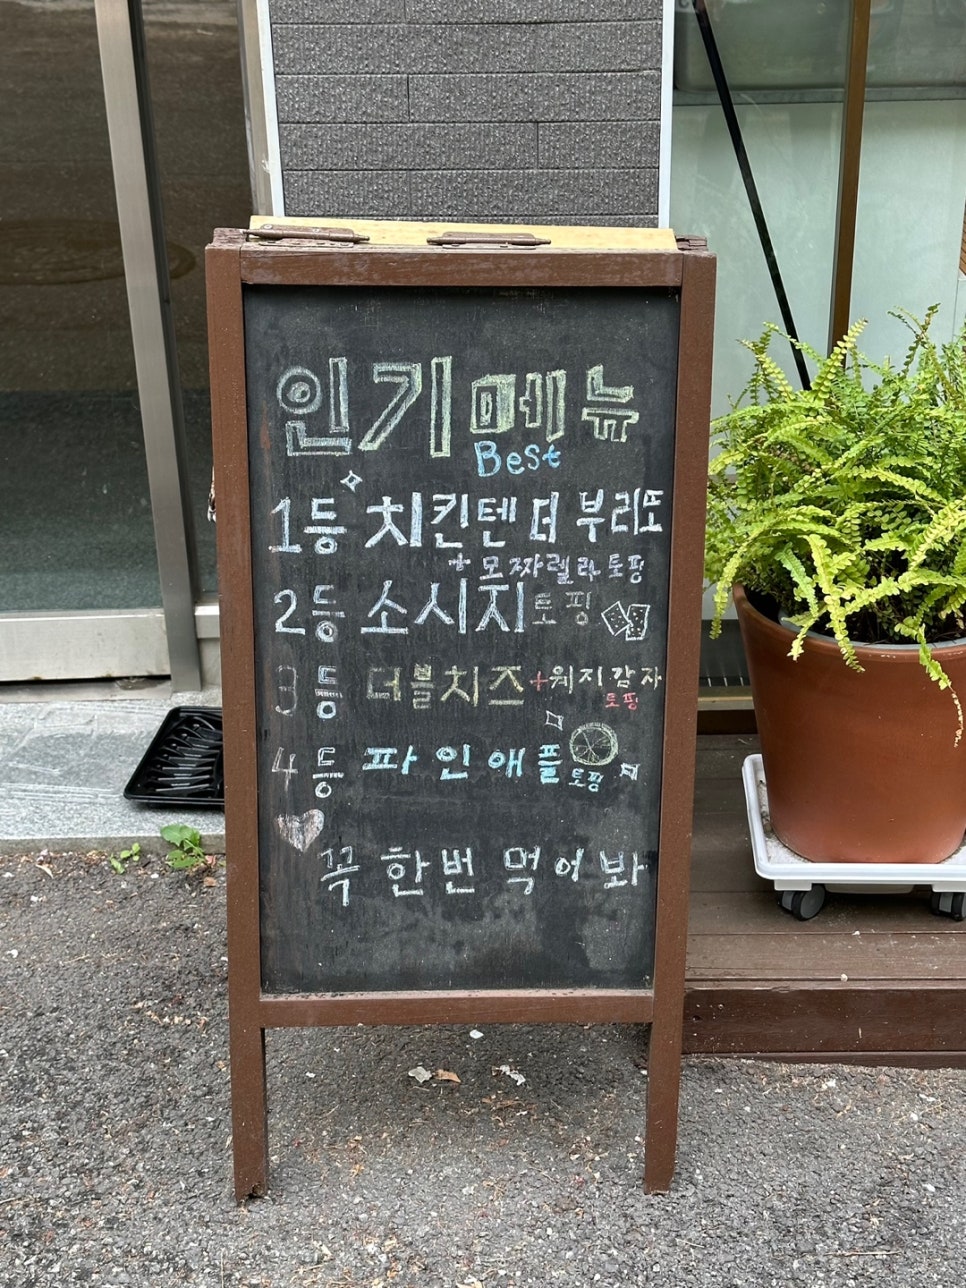 인기메뉴
Best
1등 치킨텐더 부리또
+ 모짜렐라토핑
2등 소시지토핑
3등 더블치즈+웨지감자
토핑
4등 파인애플토핑
꼭 한번 먹어봐